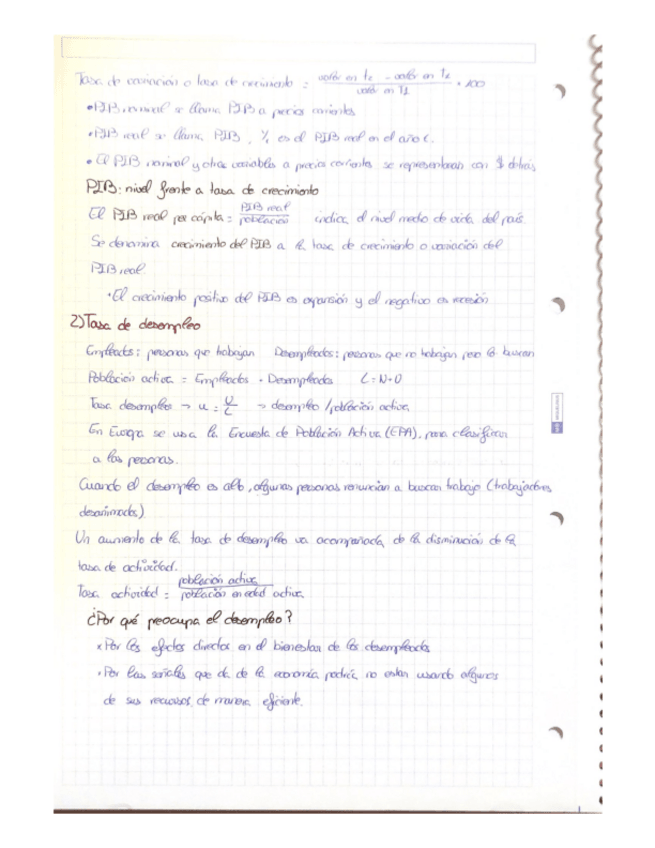 Tasa de variación o tasa de crecimiento = valor en t2 - valor en t1 / valor en T1 · 100
• PIB nominal se llama PIB a precios corrientes
• PIB real se llama PIB, Yt es el PIB real en el año t.
• El PIB nominal y otras variables a precios corrientes se representaran con $ detrás
PIB: nivel frente a tasa de crecimiento
El PIB real per cápita = PIB real / población indica el nivel medio de vida del país.
Se denomina crecimiento del PIB a la tasa de crecimiento o variación del
PIB real.
· El crecimiento positivo del PIB es expansión y el negativo es recesión
2) Tasa de desempleo
Empleados: personas que trabajan Desempleados: personas que no trabajan pero lo buscan
Población activa = Empleados + Desempleados L = N+U
Tasa desempleo → u = U/L → desempleo / población activa
En Europa se usa la Encuesta de Población Activa (EPA), para clasificar
a las personas.
Cuando el desempleo es alto, algunas personas renuncian a buscar trabajo (trabajadores
desanimados)
Un aumento de la tasa de desempleo va acompañada de la disminución de la
tasa de actividad.
Tasa actividad = población activa / población en edad activa
¿Por qué preocupa el desempleo?
• Por los efectos directos en el bienestar de los desempleados
• Por las señales que da de la economía podría no estar usando algunos
de sus recursos de manera eficiente.